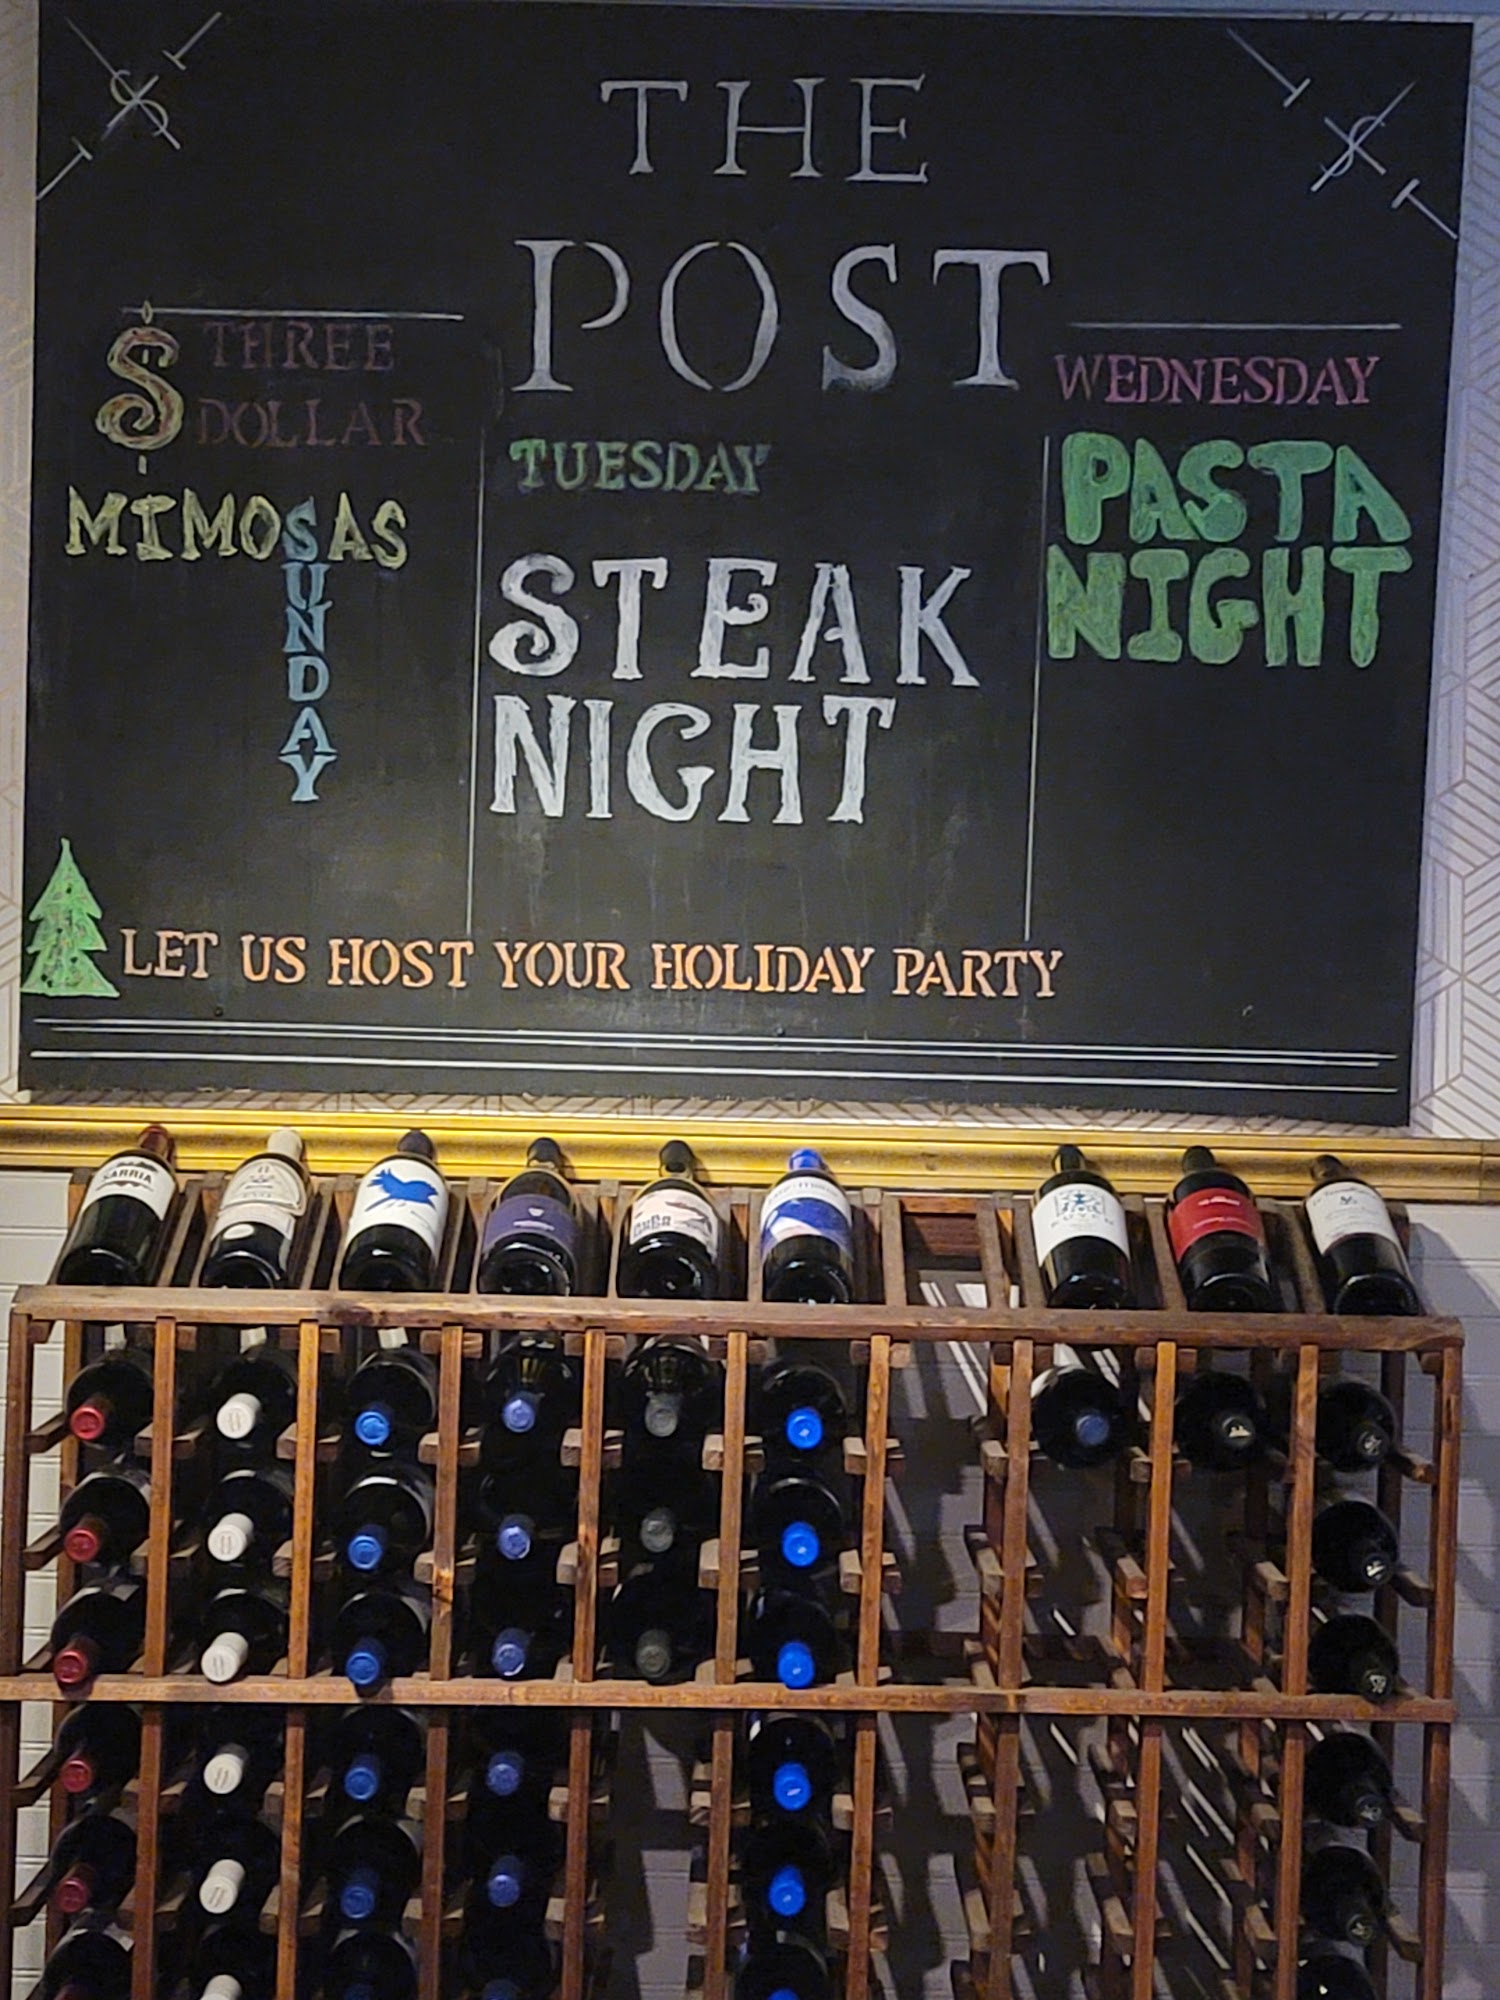 THE
POST
$ THREE
DOLLAR
MIMOSAS
SUNDAY
TUESDAY
STEAK
NIGHT
WEDNESDAY
PASTA
NIGHT
LET US HOST YOUR HOLIDAY PARTY